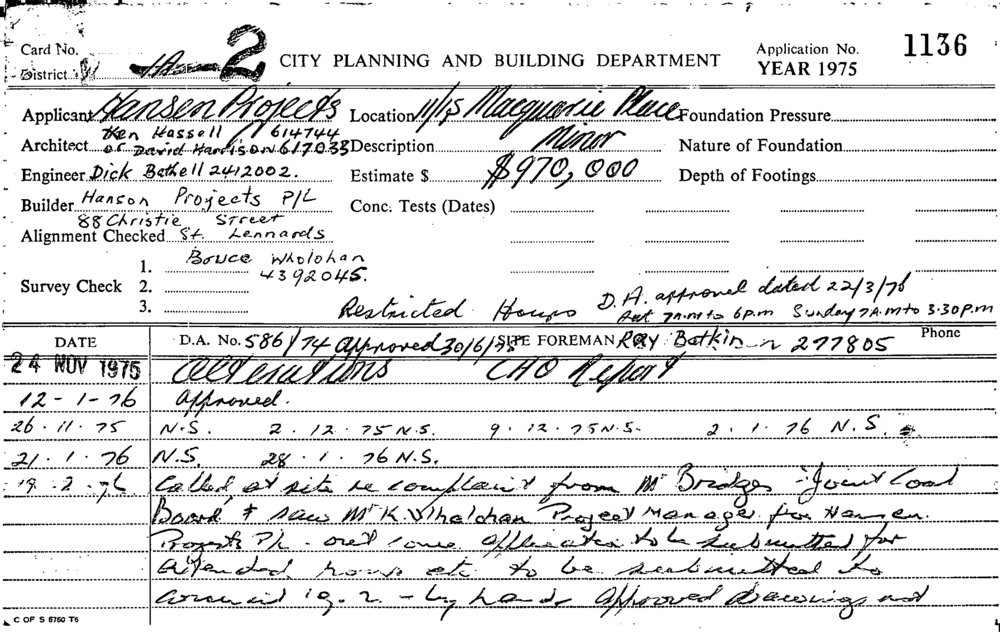 Card No. 2 CITY PLANNING AND BUILDING DEPARTMENT Application No. 1136
District W YEAR 1975
Applicant Hansen Projects Location 11/15 Macquarie Place Foundation Pressure
Ken Hassell 614744
Architect or David Harrison 617033 Description Minor Nature of Foundation
Engineer Dick Bethell 2412002. Estimate $ $970,000 Depth of Footings
Builder Hanson Projects P/L Conc. Tests (Dates)
88 Christie Street
Alignment Checked St. Lennards
Bruce Wholohan
1.
4392045.
Survey Check 2.
3. Restricted Hours D.A. approved dated 22/3/76
Sat 7A.M to 6P.M Sunday 7A.M to 3.30P.M
DATE D.A. No. 586/74 Approved 30/6/75 SITE FOREMAN Ray Botkin 277805 Phone
24 NOV 1975 Alterations CHO Report
12-1-76 Approved.
26.11.75 N.S. 2.12.75 N.S. 9.12.75 N.S. 2.1.76 N.S.
21.1.76 N.S. 28.1.76 N.S.
19.2.76 Called at site re complaint from Mr Bridges - Joint Coal
Board & saw Mr K. Wholohan Project Manager for Hansen.
Projects P/L - application to be submitted for
extended hours etc to be submitted to
council 19.2. - by hand Approved drawings not
C OF S 6760 T6